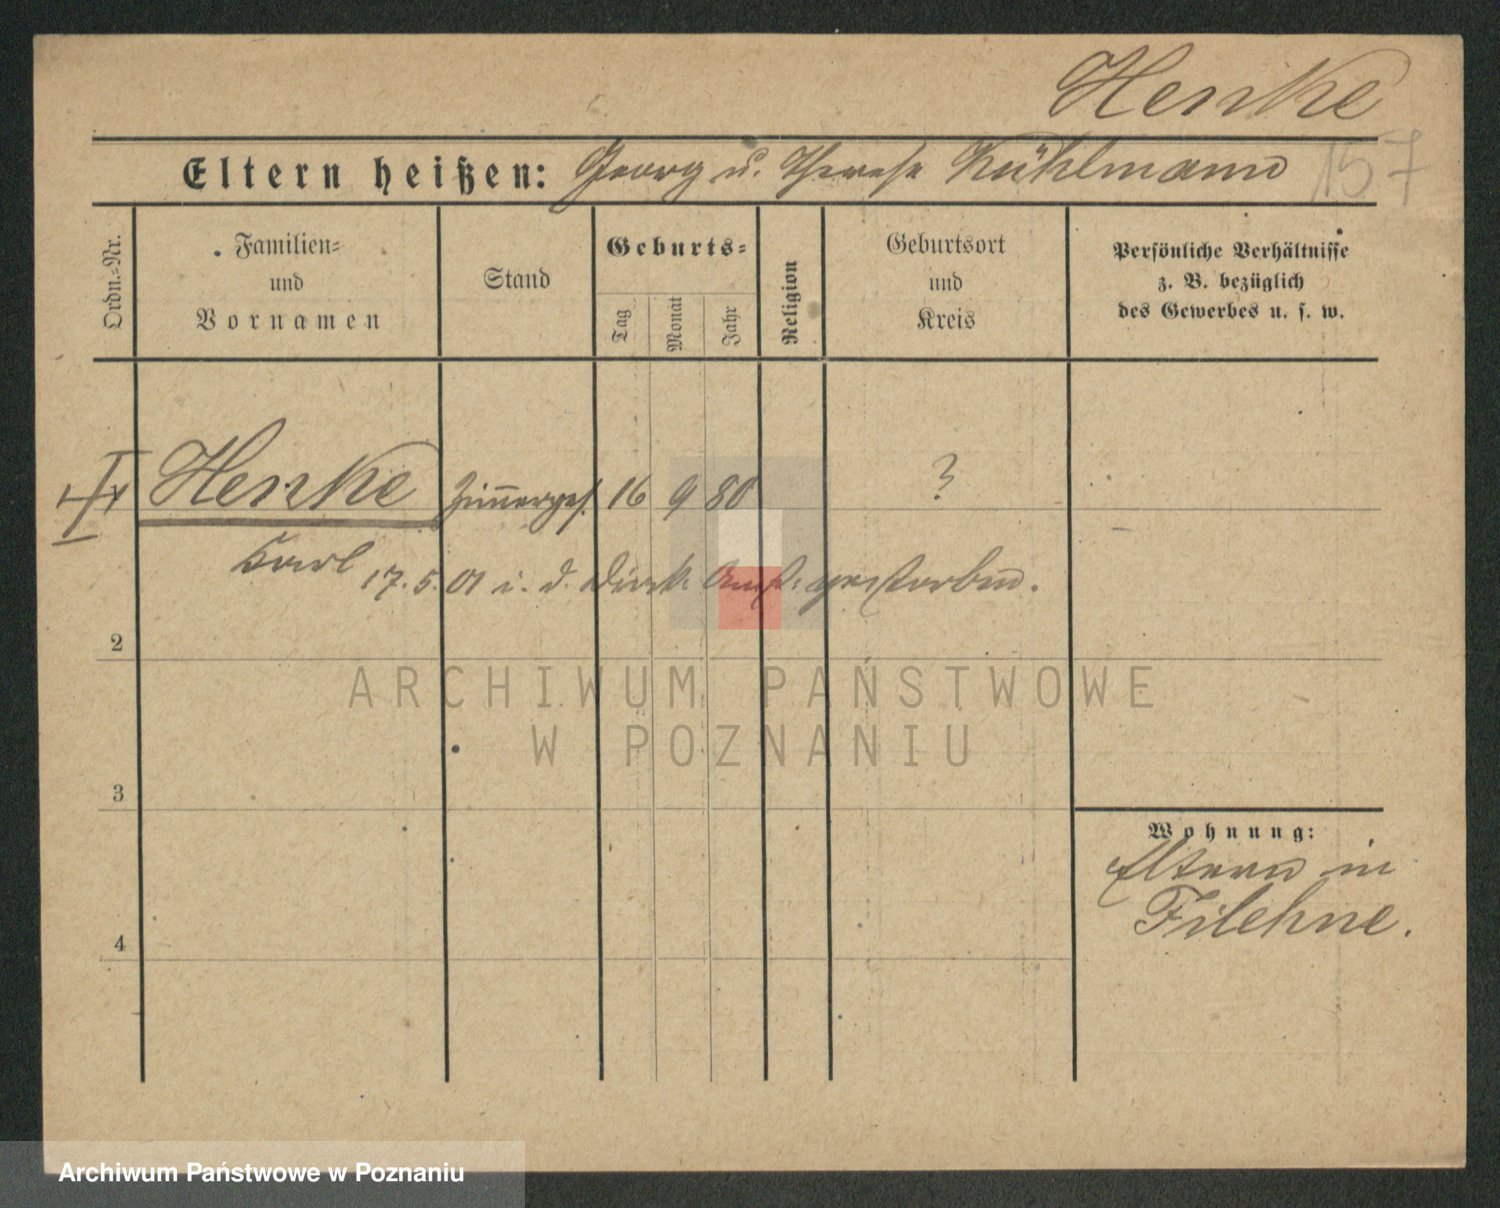 Henke
Eltern heißen: Georg u. Therese Kühlmann 157
Ordn.=Nr.
Familien=
und
Vornamen
Stand
Geburts=
Tag
Monat
Jahr
Religion
Geburtsort
und
Kreis
Persönliche Verhältnisse
z. B. bezüglich
des Gewerbes u. s. w.
Henke Zimmerges. 16 9 80 ?
Karl
17.5.01 i. d. gestorben.
2
3
4
Wohnung:
Eltern in
Filehne.
ARCHIWUM PAŃSTWOWE
W POZNANIU
Archiwum Państwowe w Poznaniu